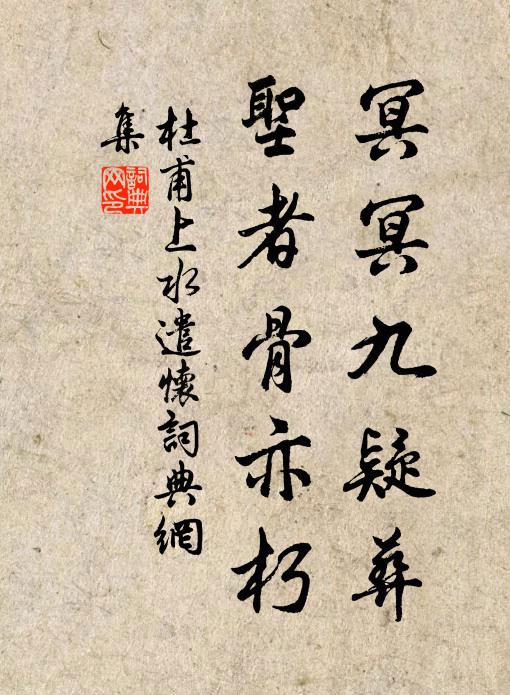 冥冥九疑葬
聖者骨亦朽
杜甫上水遣懷詞典網
集
詞典
网印